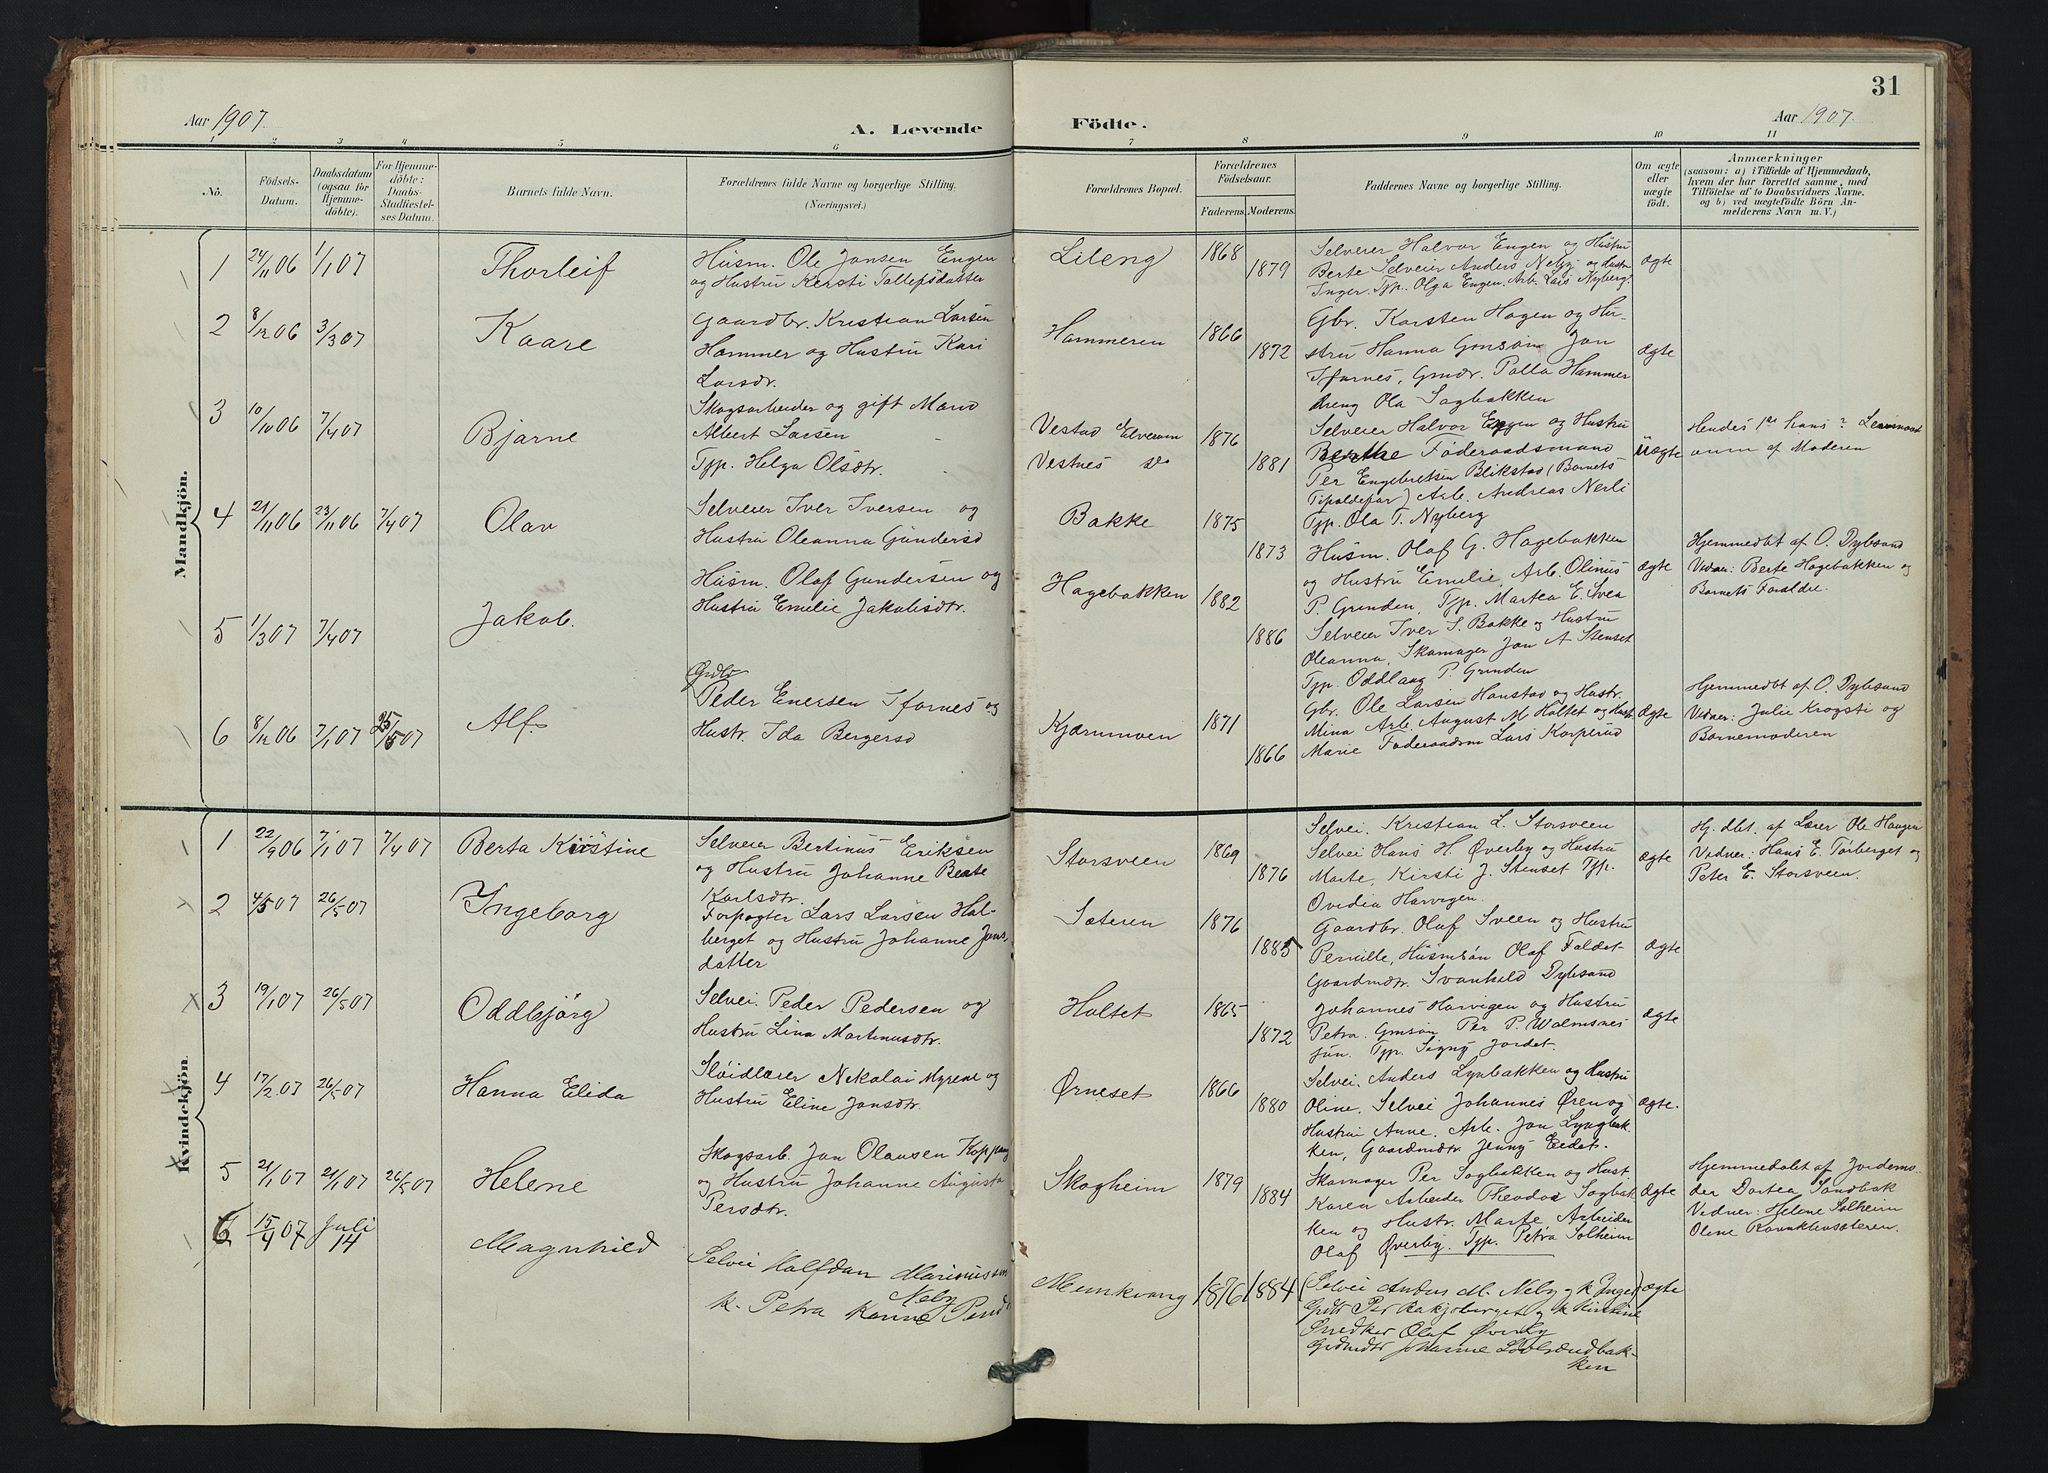 31
Aar 1907.
A. Levende Födte.
Aar 1907.
1 2 3 4 5 6 7 8 9 10 11
No.
Födsels-Datum.
Daabsdatum (ogsaa for Hjemme-döbte).
For Hjemme-döbte: Daabs-Stadfæstel-ses Datum.
Barnets fulde Navn.
Forældrenes fulde Navne og borgerlige Stilling.
(Næringsvei.)
Forældrenes Bopæl.
Forældrenes Födselsaar.
Faderens. Moderens.
Faddernes Navne og borgerlige Stilling.
Om ægte eller uægte födt.
Anmærkninger
(saasom: a) i Tilfælde af Hjemmedaab,
hvem der har forrettet samme, med
Tilföielse af to Daabsvidners Navne.
og b) ved uægtefödte Börn An-
melderens Navn m. V.)
Mandkjön.
1 24/11 06 1/1 07 Thorleif
Husm. Ole Jansen Engen
og Hustru Kersti Tollefsdatter
Lileng 1868 1879
Selveier Halvor Engen og Hustru
Berte Selveier Anders Neby og Hustr.
Inger. Tjp. Olga Engen. Arb. Lars Nyberg.
ægte
2 8/12 06 3/3 07 Kaare
Gaardbr. Kristian Larsen
Hammer og Hustru Kari
Larsdr.
Hammeren 1866 1872
Gbr. Karsten Hagen og Hu-
stru Hanna Gmsøn Jan
Ifarnes, Gmdr. Palla Hammer
Dreng Ola Sagbakken
ægte
3 10/10 06 7/4 07 Bjarne
Skogsarbeider og gift Mand
Albert Larsen
Tjp. Helga Olsdtr.
Vestad Elverum
Vestnes do
1876 1881
Selveier Halvor Engen og Hustru
Berthe Føderaadsmand
Per Engebretsen Blikstad (Barnets
Arb. Andreas Nerli
Tjp. Ola T. Nyberg
Uægte
Hendes 1ste hans ?
af Moderen
4 21/11 06 23/11 06 7/4 07 Olav
Selveier Iver Iversen og
Hustru Oleanna Gundersd
Bakke 1875 1873
Husm. Olaf G. Hagebakken
og Hustru Emelie, Arb. Olinus
P. Grinden, Tjp. Martea E. Svea
ægte
Hjemmedbt af O. Dybsand
Vidner: Berte Hagebakken og
Barnets Forældre.
5 1/3 07 7/4 07 Jakob.
Husm. Olaf Gundersen og
Hustru Emelie Jakobsdtr.
Hagebakken 1882 1886
Selveier Iver S. Bakke og Hustru
Oleanna, Skomager Jan A Stenset
Tjp. Oddlaug P. Grinden
6 8/12 06 7/1 07 25/5 07 Alf.
Peder Enersen Ifarnes og
Hustr. Ida Bergersd
Kjærnmoen 1871 1866
Gbr. Ole Larsen Hanstad og Hustr.
Mina Arb. August M Holtet og Hust.
Marie Føderaadsm Lars Korperud
ægte
Hjemmedbt af O. Dybsand
Vidner: Julie Krogsti og
Barnemoderen
Kvindekjön.
1 22/9 06 7/1 07 7/4 07 Berta Kristine
Selveier Bertinus Eriksen
og Hustru Johanne Beate
Karlsdtr.
Storsveen 1869 1876
Selvei. Kristian L. Storsveen
Selvei Hans H. Øverby og Hustru
Marte, Kirsti J. Stenset Tjp.
Ovidia Harvigen.
ægte
Hj. dbt. af Lærer Ole Haugen
Vidner: Hans E. Torberget og
Peter E. Storsveen.
2 4/5 07 26/5 07 Ingeborg
Forpagter Lars Larsen Hal-
berget og Hustru Johanne Jans-
datter
Sæteren 1876 1885
Gaardbr. Olaf Sveen og Hustru
Pernille, Husmsøn Olaf Faldet
Gaardmdtr. Svanhild Dybsand
ægte
3 19/1 07 26/5 07 Oddbjørg
Selvei. Peder Pedersen og
Hustru Lina Martinusdtr.
Holtet 1865 1872
Johannes Harvigen og Hustru
Petra. Gmsøn Per P. Walmsnes
jun. Tjp. Signy Jordet.
ægte
4 17/2 07 26/5 07 Hanna Elida
Sløidlærer Nekolai Myrene og
Hustru Eline Jansdtr.
Ørneset 1866 1880
Selvei. Anders Lynbakken og Hustru
Oline. Selvei Johannes Øren og
Hustru Anne. Arb. Jan Lyngbak-
ken, Gaardmdtr. Jenny Eidet.
ægte.
5 21/1 07 21/1 07 26/5 07 Helene
Skogsarb. Jan Olausen Koppang
og Hustru Johanne Augusta
Persdtr.
Skogheim 1879 1884
Skomager Per Sagbakken og Hust.
Karen Arbeider Theodor Sagbak-
ken og Hustr. Marte, Arbeider
Olaf Øverby. Tjp. Petra Solheim
ægte
Hjemmedøbt af Jordemo-
der Dortea Sandbak
Vidner: Helene Solheim
Oline
6 15/4 07 Juli 14 Magnhild
Selvei Halfdan Marinussen
Neby
k. Petra Hanna
Munkvang 1876 1884
Selvei Anders M. Neby og k Inger
Grdbr Per Rakjøberget og k Kirstine
Snedker Olaf Øverby
Grdmdtr Johanne
ken
ægte